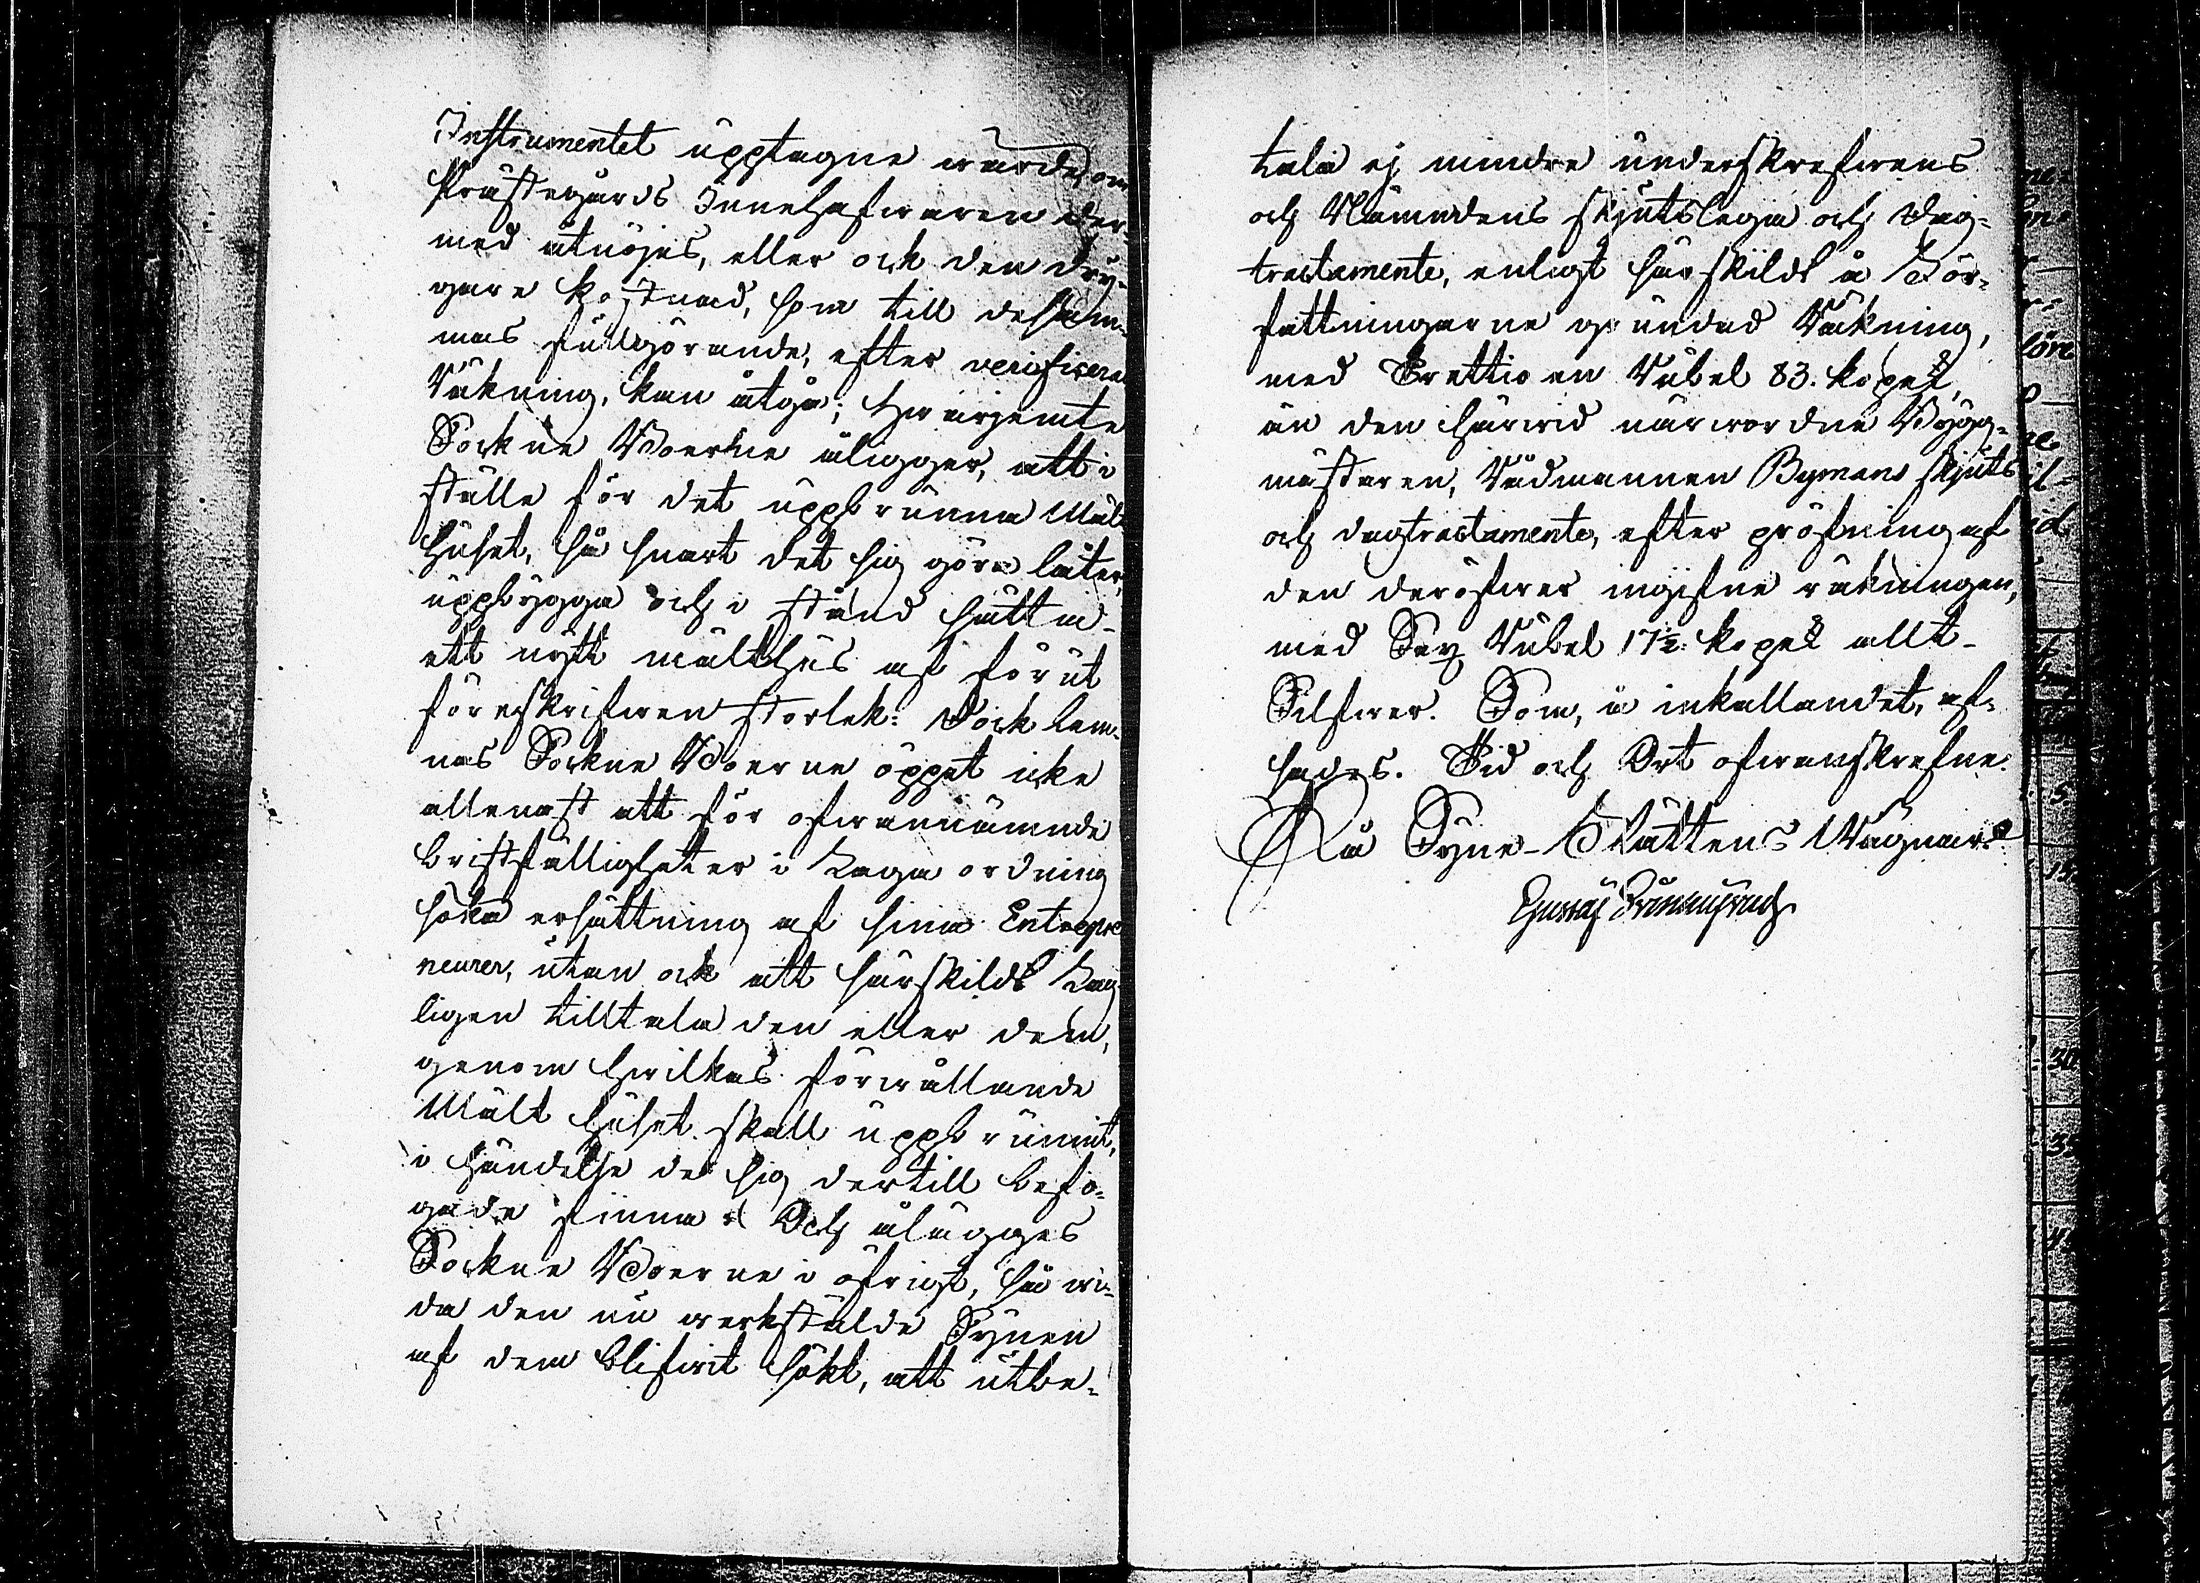 Instrumentet upptagne warde, om
Prästegårds Innehafwaren der-
med åtnöjes, eller ock den dry-
gare kostnad, som till desam-
mas fullgörande, efter verificerad
Räkning, kan åtgå; hwarjemte
Sockne Boerne åligger, att i
ställe för det uppbrunna Malt
huset, så snart det sig göra låter,
uppbygga och i stånd sätta
ett nytt malthus af förut
föreskrifwen storlek: Dock lem-
nas Sockne Boerne öppet icke
allenast att för ofwannämnde
bristfälligheter i Laga ordning
söka ersättning af sina Entrepre
neurer, utan ock att särskildt Lag-
ligen tilltala den eller dem,
genom hwilkas förwållande
Malt huset skall uppbrunnit,
i händelse de sig dertill befo-
gade finna. Och ålägges
Sockne Boerne i öfrigt, så wi-
da den nu werkstälde Synen
af dem blifwit sökt, att utbe-
tala ej mindre underskrefwens
och Nämndens skjutslega och dag-
tractamente, enligt särskildt å För-
fattningarne grundad Räkning,
med Trettio en Rubel 83. kopek,
än den härwid närwordne Bygg-
mästaren, Rådmannen Bymans skjuts
och dagtractamente, efter pröfning af
den deröfwer ingifne räkningen,
med Sex Rubel 17½ kopek allt
Silfwer. Som, å inkallandet, af-
sades. Tid och Ort ofwanskrefne.
På Syne-Rättens Wägnar
Gustaf